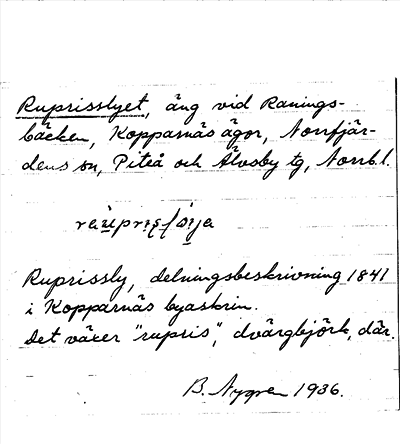 Ruprisslyet, äng vid Ranings-
bäcken, Kopparnäs ägor, Norrfjär-
dens sn, Piteå och Älvsby tg, Norrb.l.
Ruprissly, delningsbeskrivning 1841
i Kopparnäs byaskrin.
Det växer "rupris", dvärgbjörk, där.
B. Nygren 1936.